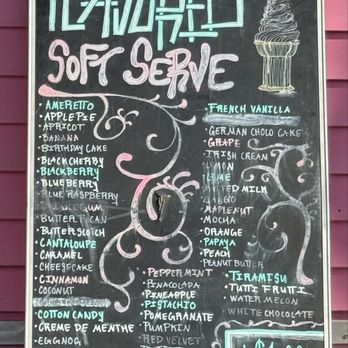 FLAVORED
SOFT SERVE
• AMERETTO
• APPLE PIE
• APRICOT
• BANANA
• BIRTHDAY CAKE
• BLACK CHERRY
• BLACKBERRY
• BLUEBERRY
• BLUE RASPBERRY
• BUTTER PECAN
• BUTTERSCOTCH
• CANTALOUPE
• CARAMEL
• CHEESECAKE
• CINNAMON
• COCONUT
• COTTON CANDY
• CREME DE MENTHE
• EGGNOG
• PEPPERMINT
• PINACOLADA
• PINEAPPLE
• PISTACHIO
• POMEGRANATE
• PUMPKIN
RED VELVET
• FRENCH VANILLA
• GERMAN CHOLO CAKE
• GRAPE
• IRISH CREAM
• LEMON
• LIME
MILK
• MANGO
• MAPLENUT
• MOCHA
• ORANGE
• PAPAYA
• PEACH
• PEANUT BUTTER
• TIRAMISU
• TUTTI FRUTTI
• WATERMELON
• WHITE CHOCOLATE